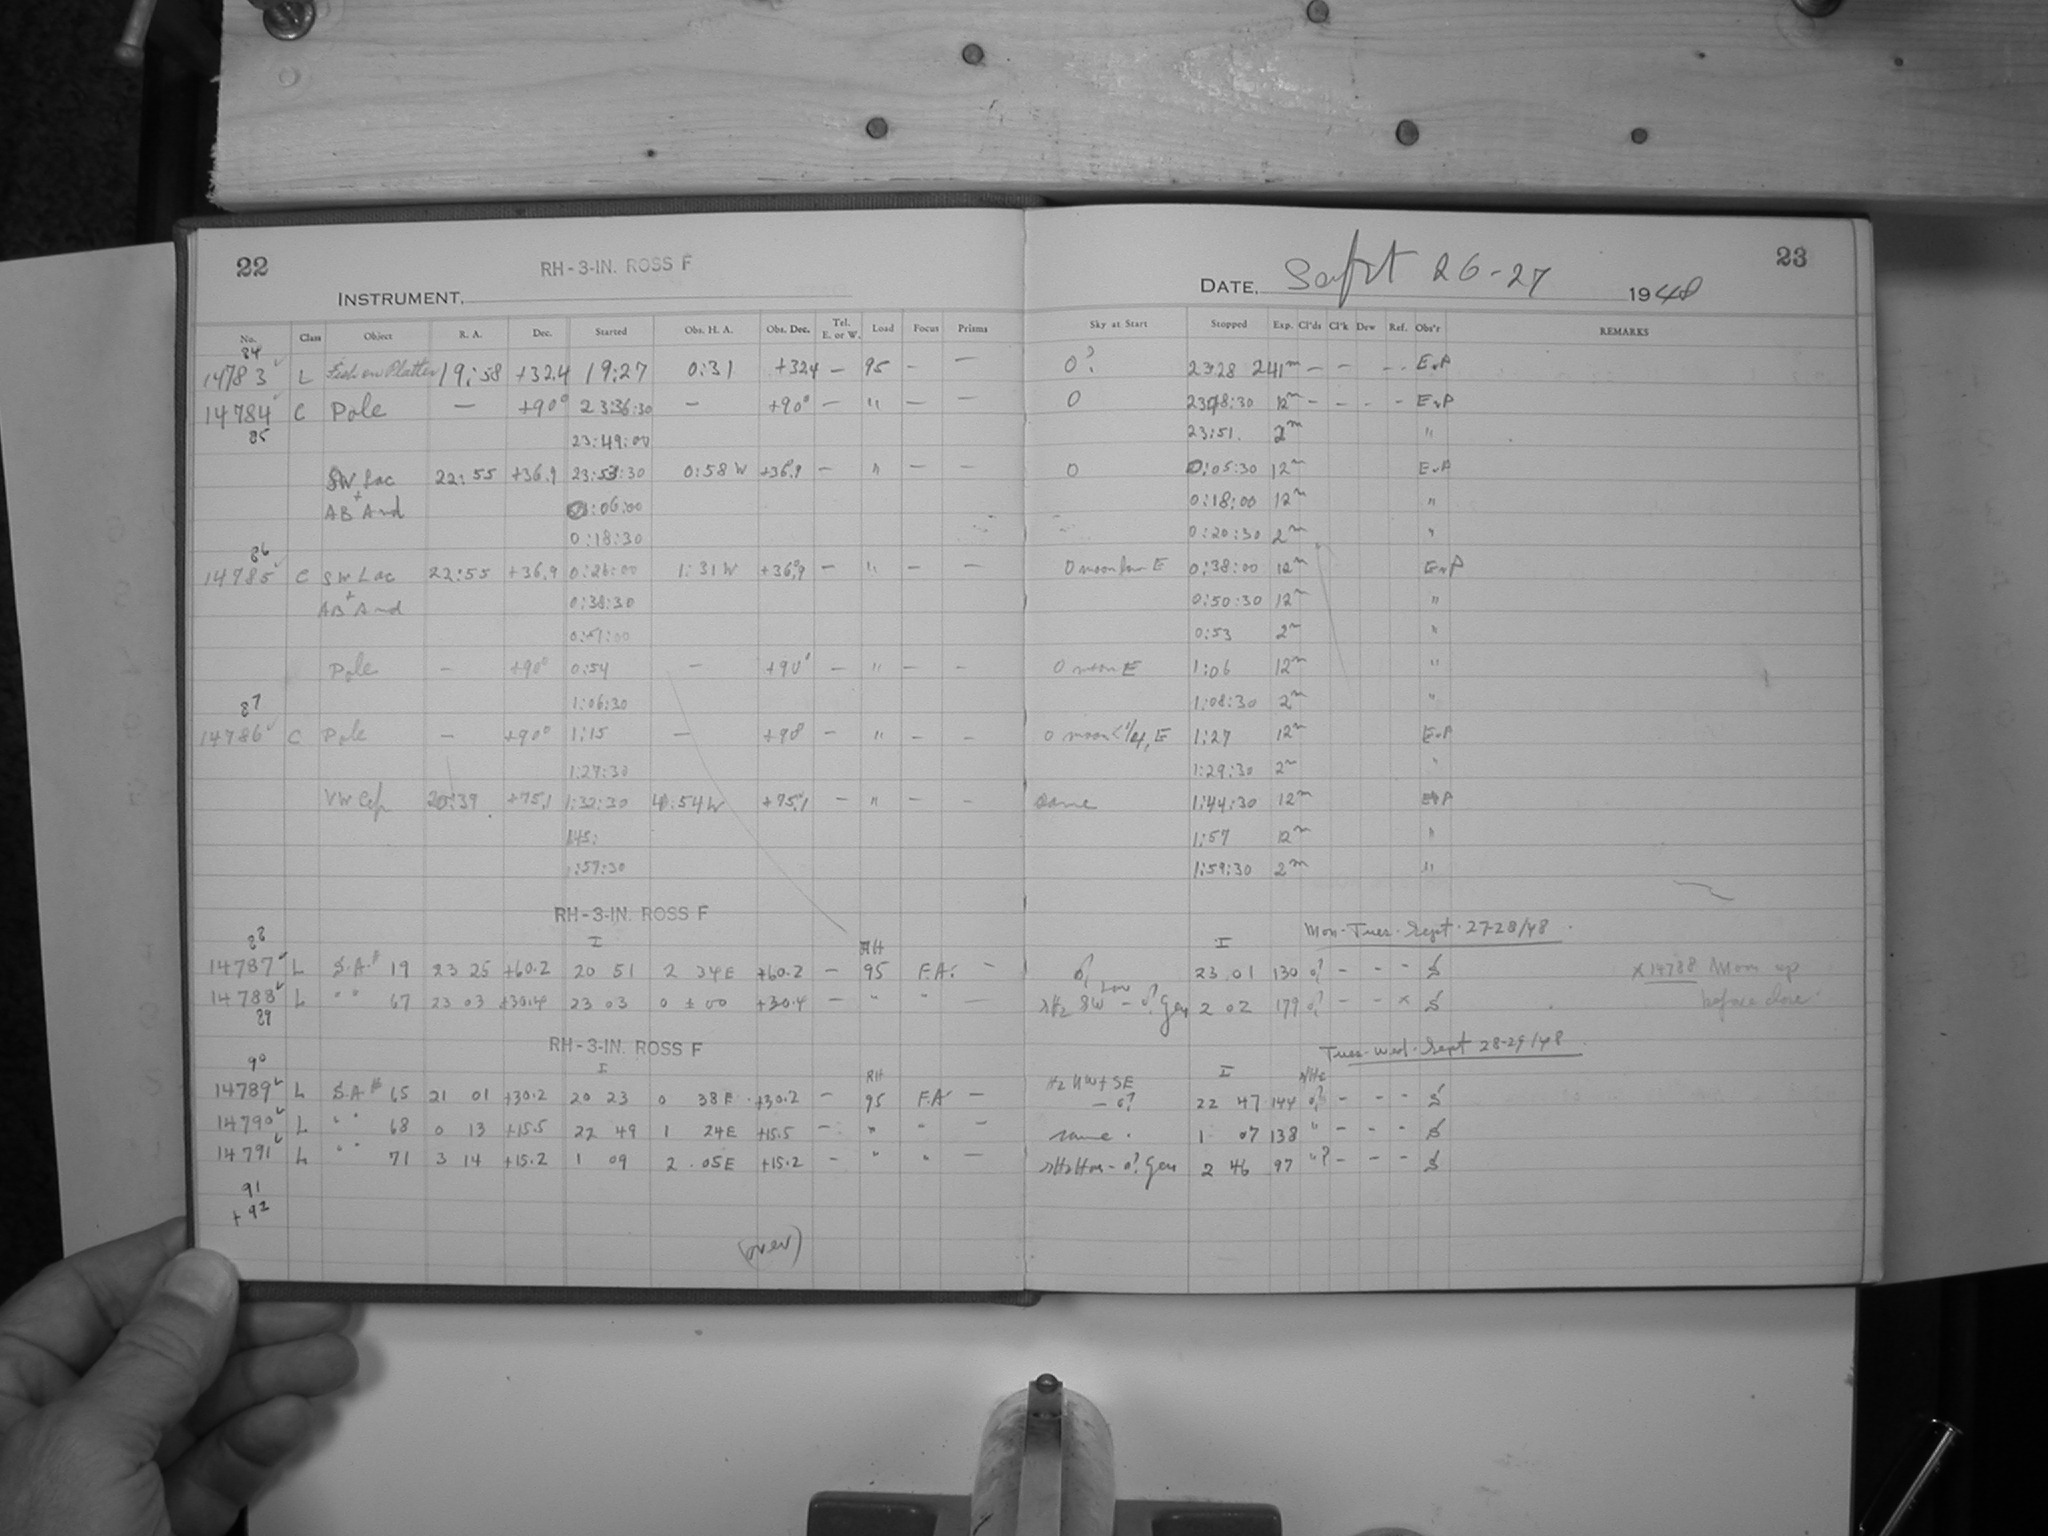 22 RH-3-IN. ROSS F
INSTRUMENT,
DATE, Sept 26-27 1948 23
No. Class Object R. A. Dec. Started Obs. H. A. Obs. Dec. Tel. E. or W. Load Focus Prisms Sky at Start Stopped Exp. Cl'ds Cl'k Dew Ref. Obs'r REMARKS
84
14783 L 19:58 +32.4 19:27 0:31 +32.4 – 95 – – 0? 23:28 241m – – – – E.P
14784 C Pole – +90° 23:36:30 – +90° – " – – 0 12m – – – – E.P
85 23:49:00 23:51. 2m "
SW Lac 22:55 +36.9 23:53:30 0:58 W +36.9 – " – – 0 0:05:30 12m E.P
+ AB And 0:06:00 0:18:00 12m "
0:18:30 0:20:30 2m "
86
14785 C SW Lac 22:55 +36.9 0:26:00 1:31 W +36.9 – " – – 0 moon low E 0:38:00 12m E.P
+ AB And 0:38:30 0:50:30 12m "
0:51:00 0:53 2m "
Pole – +90° 0:54 – +90° – " – – 0 moon E 1:06 12m "
1:06:30 1:08:30 2m "
87
14786 C Pole – +90° 1:15 – +90 – " – – 0 moon <1/4, E 1:27 12m E.P
1:27:30 1:29:30 2m "
VW Cep 20:39 +75.1 1:32:30 4:54 W +75.1 – " – – same 1:44:30 12m E.P
1:45: 1:57 12m "
1:57:30 1:59:30 2m "
RH-3-IN. ROSS F Mon-Tues. Sept. 27-28/48
88 I RH I
14787 L S.A.# 19 23 25 +60.2 20 51 2 34E +60.2 – 95 F.A. – 23 01 130 0? – – – S x14788 Moon up
14788 L " " 67 23 03 +30.4 23 03 0 ± 00 +30.4 – " " – 2 02 179 0? – – x S before close.
89
RH-3-IN. ROSS F Tues-Wed. Sept 28-29/48
90 I RH Hz NW+SE I
14789 L S.A.# 65 21 01 +30.2 20 23 0 38E +30.2 – 95 F.A – – 0? 22 47 144 0? – – – S
14790 L " " 68 0 13 +15.5 22 49 1 24E +15.5 – " " – same. 1 07 138 " – – – S
14791 L " " 71 3 14 +15.2 1 09 2 05E +15.2 – " " – 2 46 97 "? – – – S
91
+ 92
(over)